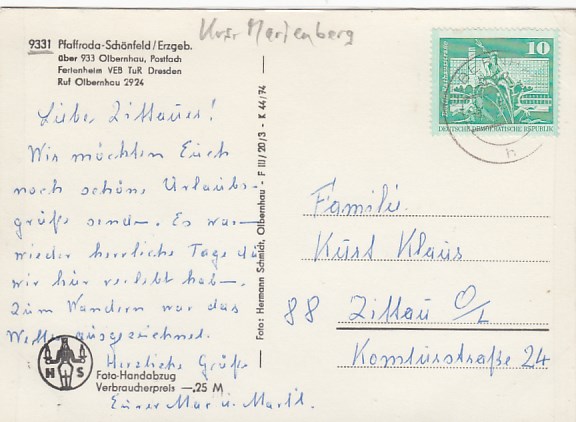 Krs Marienberg
9331 Pfaffroda-Schönfeld / Erzgeb.
über 933 Olbernhau, Postfach
Ferienheim VEB TuR Dresden
Ruf Olbernhau 2924
Liebe Zittauer!
Wir möchten Euch
noch schöne Urlaubs-
grüße senden. Es war
wieder herrliche Tage die
wir hier verlebt haben.
Zum Wandern war das
Wetter ausgezeichnet.
Herzliche Grüße
H S
Foto-Handabzug
Verbraucherpreis —.25 M
Eure
Foto: Hermann Schmidt, Olbernhau - F III/20/3 - K 44/74
10
DEUTSCHE DEMOKRATISCHE REPUBLIK
Familie
Kurt Klaus
88 Zittau O/L
Komturstraße 24